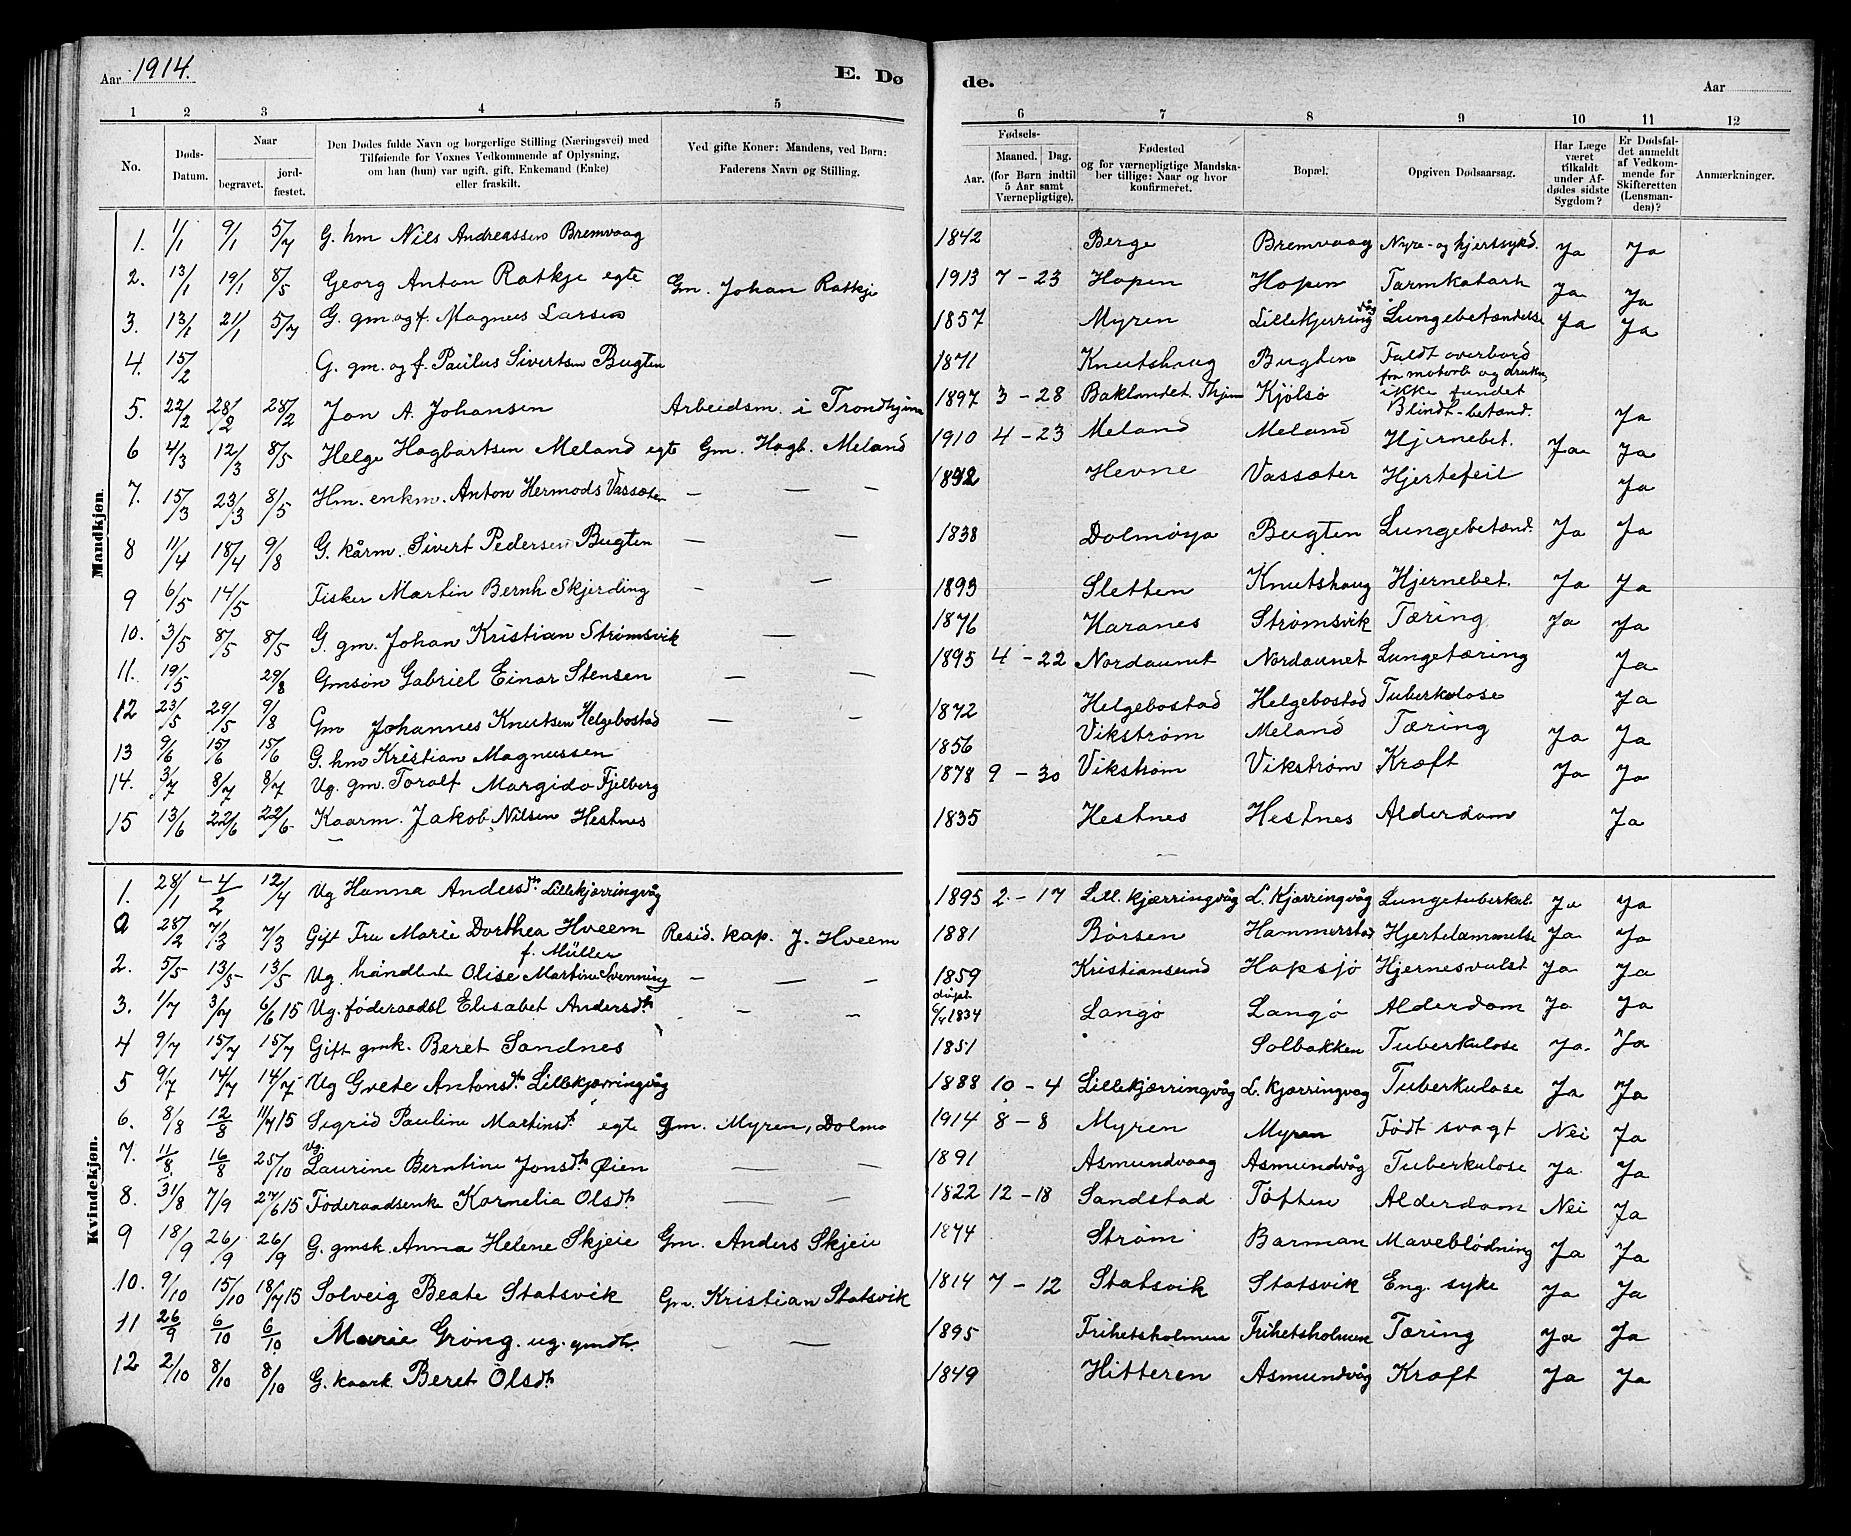 Aar 1914.
E. Dø
de.
Aar
1 2 3 4 5 6 7 8 9 10 11 12
No.
Døds-Datum.
Naar
begravet.
jord-fæstet.
Den Dødes fulde Navn og borgerlige Stilling (Næringsvei) med
Tilføiende for Voxnes Vedkommende af Oplysning,
om han (hun) var ugift, gift, Enkemand (Enke)
eller fraskilt.
Ved gifte Koner: Mandens, ved Børn:
Faderens Navn og Stilling.
Fødsels-
Aar.
Maaned. Dag.
(for Børn indtil
5 Aar samt
Værnepligtige).
Fødested
og for værnepligtige Mandska-
ber tillige: Naar og hvor
konfirmeret.
Bopæl.
Opgiven Dødsaarsag.
Har Læge
været
tilkaldt
under Af-
dødes sidste
Sygdom?
Er Dødsfal-
det anmeldt
af Vedkom-
mende for
Skifteretten
(Lensman-
den)?
Anmærkninger.
Mandkjøn.
1. 1/1 9/1 5/7 G. hm Nils Andreassen Bremvaag 1842 Berge Bremvaag Nyre- og hjertsykd. Ja Ja
2. 13/1 19/1 8/5 Georg Anton Ratkje egte Gm. Johan Ratkje 1913 7 - 23 Hopen Hopen Tarmkatarh Ja Ja
3. 13/1 21/1 5/7 G. gm. og f. Magnus Larsen 1857 Myren Lillekjerringvåg Lungebetændelse Ja Ja
4. 15/2 G. gm. og f. Paulus Sivertsen Bugten 1871 Knutshaug Bugten Faldt overbord
fra motorb og drukn,
ikke fundet
5. 22/2 28/2 28/2 Jon A. Johansen Arbeidsm. i Trondhjem 1897 3 - 28 Baklandet. Thjem Kjölsö Blindt-betænd. Ja
6 4/3 12/3 8/5 Helge Hagbartsen Meland egte Gm. Hagb. Meland 1910 4 - 23 Meland Meland Hjernebet. Ja Ja
7. 15/3 23/3 8/5 Hm. enkm. Anton Hermods Vassæter — — — Hevne Vassæter Hjertefeil Ja
8 11/4 18/4 9/8 G. kårm. Sivert Pedersen Bugten — — 1838 Dolmøya Bugten Lungebetænd. Ja Ja
9 6/5 14/5 Fisker Martin Bernh. Skjerding — — 1893 Sletten Knutshaug Hjernebet. Ja Ja
10. 3/5 8/5 8/5 G. gm. Johan Kristian Strømsvik — 1876 Haranes Strømsvik Tæring Ja Ja
11. 19/5 29/8 Gmsøn Gabriel Einar Stensen — — 1895 4 - 22 Nordaunet Nordaunet Lungetæring Ja
12 23/5 29/5 9/8 Gm Johannes Knutsen Helgebostad — — 1872 Helgebostad Helgebostad Tuberkulose Ja
13 9/6 15/6 15/6 G. hm Kristian Magnussen 1856 Vikstrøm Meland Tæring Ja Ja
14. 3/7 8/7 8/7 Ug. gm. Toralf Margido Fjelberg 1878 9 - 30 Vikstrøm Vikstrøm Kræft Ja Ja
15 13/6 22/6 22/6 Kaarm. Jakob Nilsen Hestnes 1835 Hestnes Hestnes Alderdom Ja
Kvindekjøn.
1. 28/1 4/2 12/4 Ug Hanna Andersdtr Lillekjærringvåg 1895 2 - 17 Lill. kjærringvåg L. Kjærringvåg Lungetuberkul. Ja Ja
a 28/2 7/3 7/3 Gift Fru Marie Dorthea Hveem
f. Müller Resid. kap. J. Hveem 1881 Børsen Hammerstad Hjertelammelse Ja Ja
2. 5/5 13/5 13/5 Ug. håndlerk Olise Martine Svenning — — — 1859 Kristiansund Hopsjø Hjernesvulst Ja Ja
3. 1/7 3/7 6/6 15 Ug. føderaadsl Elisabet Andersdtr — — døpt
6/4 1834 Langø Langø Alderdom Ja Ja
4 9/7 15/7 15/7 Gift gmk. Beret Sandnes 1851 Solbakken Tuberkulose Ja. Ja
5 9/7 14/7 14/7 Ug Grete Antonsdtr Lillekjærringvåg 1888 10 - 4 Lillekjærringvåg L. kjærringvåg Tuberkulose Ja Ja
6. 8/8 12/8 11/7 15 Sigrid Pauline Martinsdtr egte gm. Myren, Dolmø 1914 8 - 8 Myren Myren Født svagt Nei Ja
7. 11/8 16/8 25/10 Ug. Laurine Berntine Jonsdtr Øien — — 1891 Asmundvaag Asmundvåg Tuberkulose Ja Ja
8. 31/8 7/9 27/6 15 Føderaadsenke Kornelia Olsdtr — — 1822 12 - 18 Sandstad Tøften Alderdom Nei Ja
9 18/9 26/9 26/9 G. gmsk. Anna Helene Skjeie Gm. Anders Skjeie 1874 Strøm Barman Maveblødning Ja Ja
10. 9/10 15/10 18/7 15 Solveig Beate Statsvik Gm. Kristian Statsvik 1814 7 - 12 Statsvik Statsvik Eng. syke Ja Ja
11 26/9 6/10 6/10 Marie Grøng. ug. gmdtr. — — 1895 Frihetsholmen Frihetsholmen Tæring Ja Ja
12 2/10 8/10 8/10 G. kaark. Beret Olsdtr 1849 Hitteren Asmundvåg Kræft Ja Ja